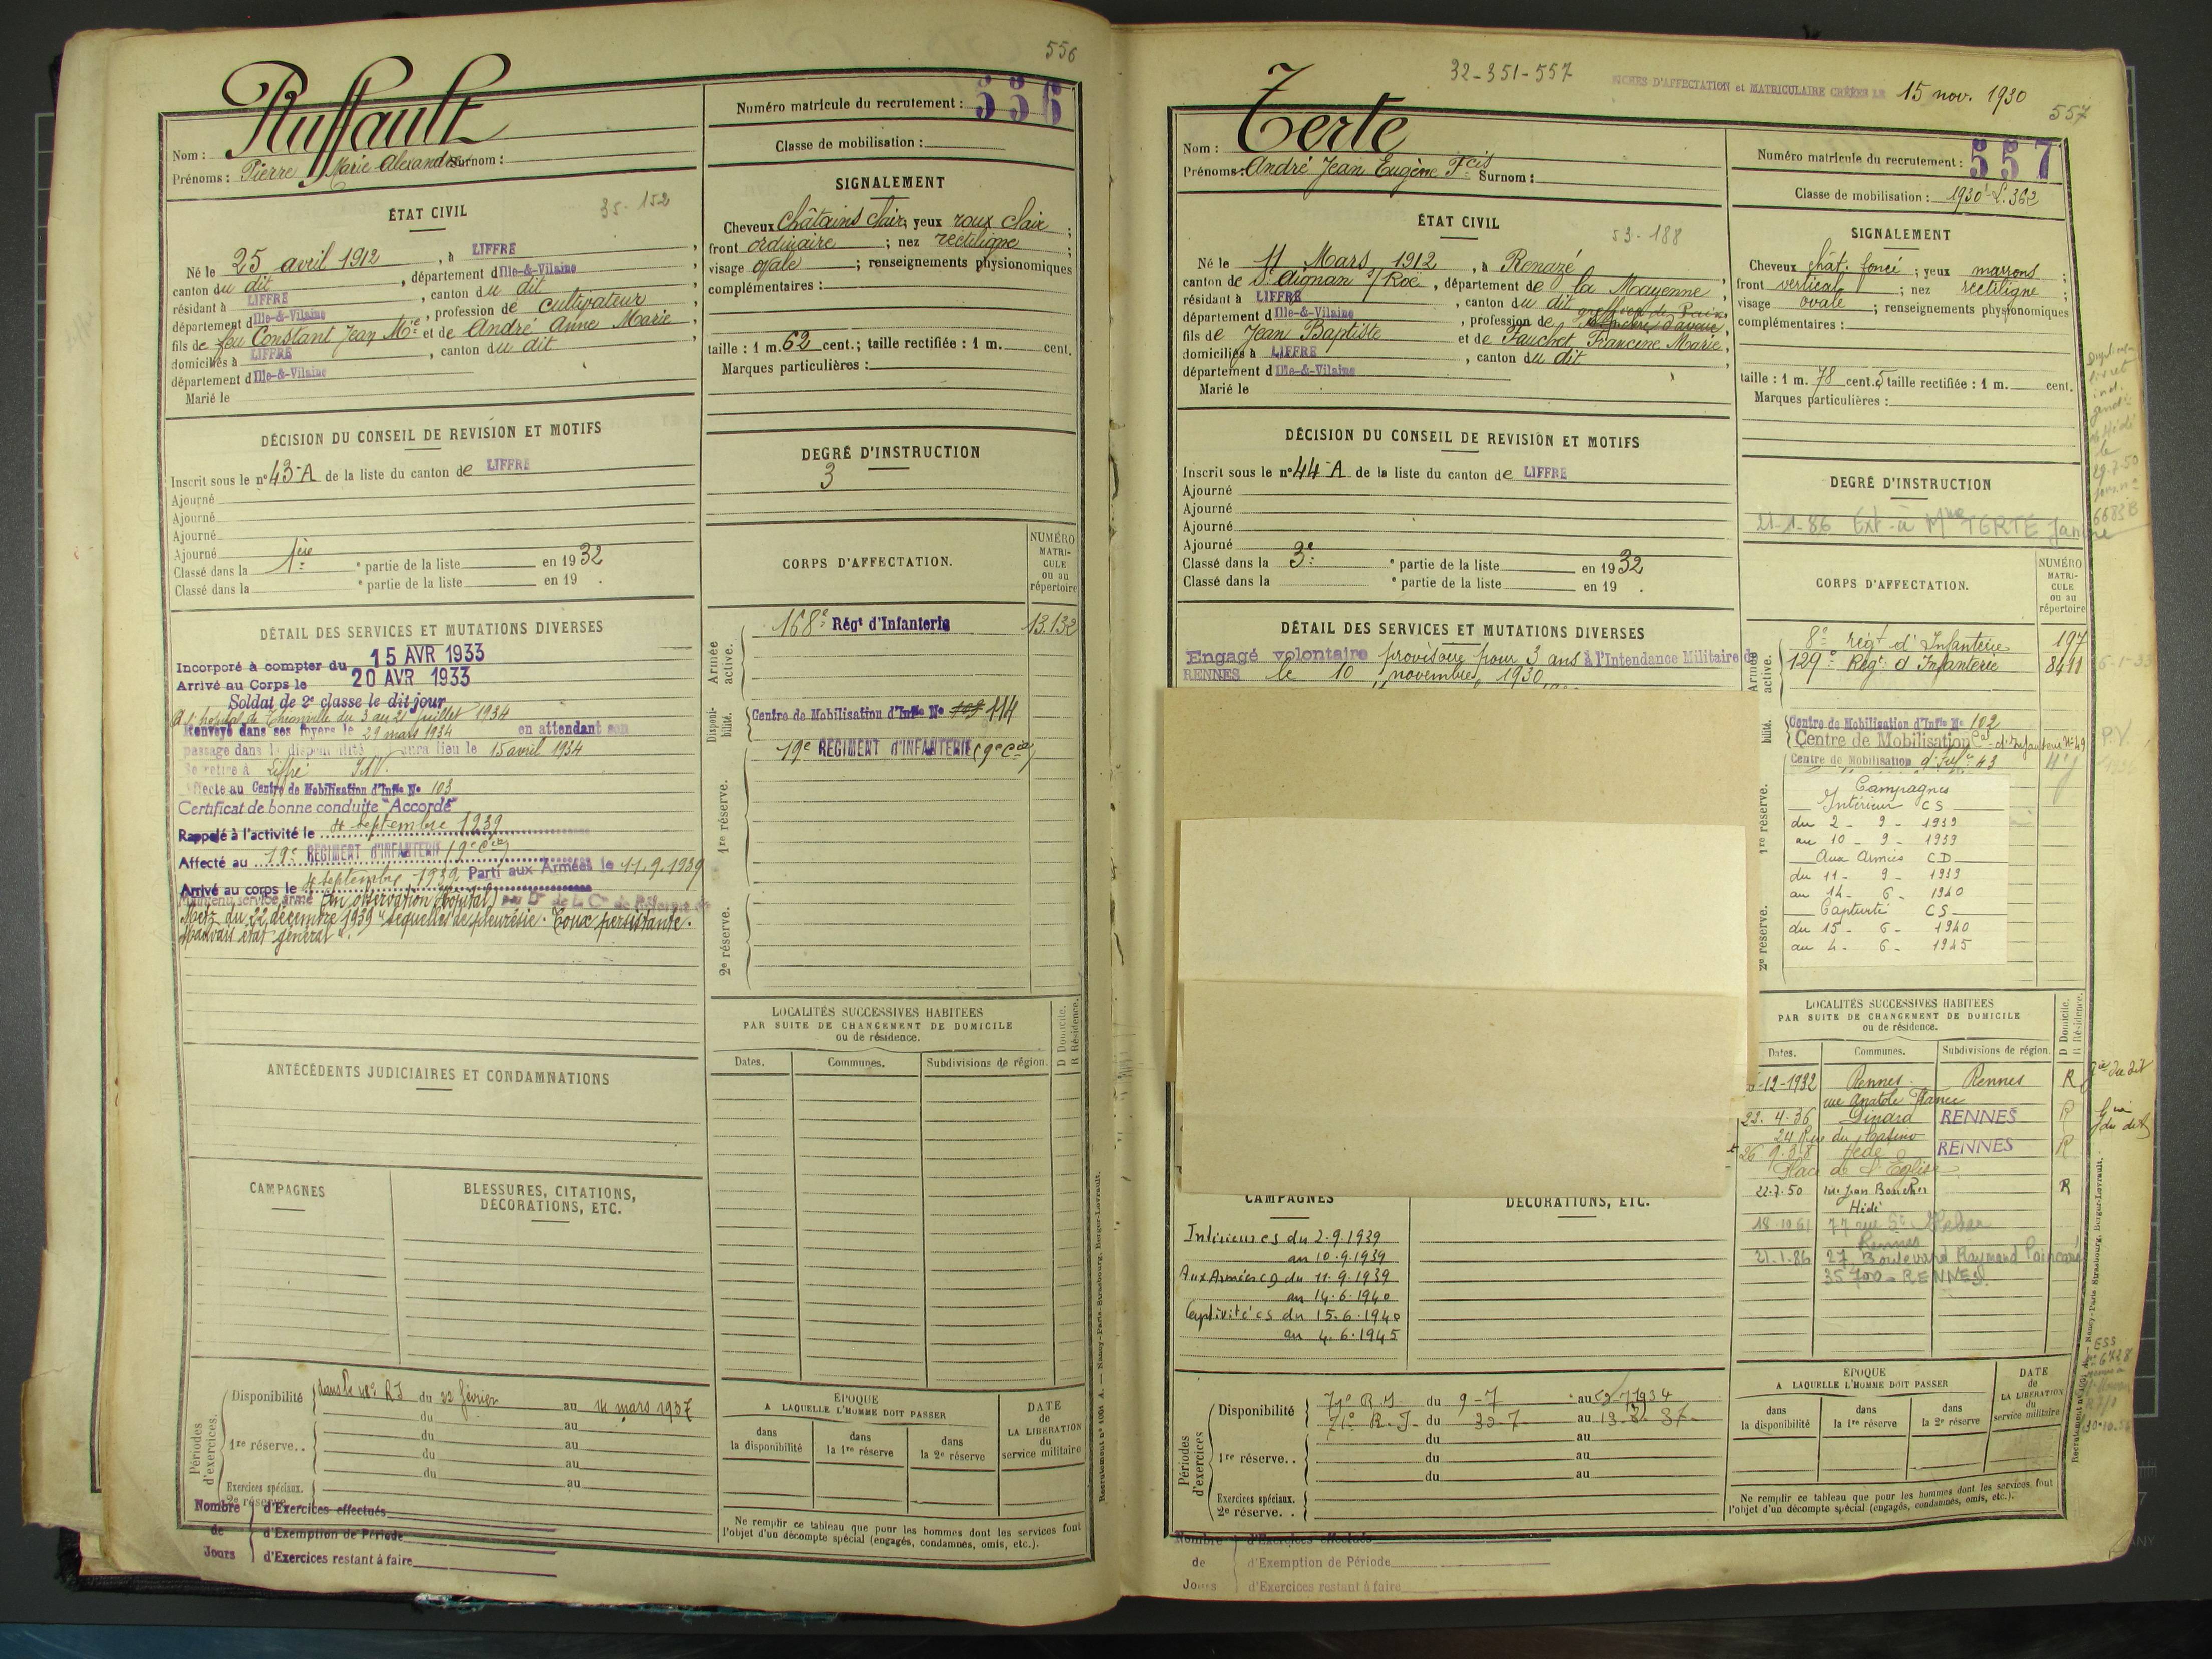 556
Ruffault
Nom :
Prénoms : Pierre Marie Alexandre Surnom :
Numéro matricule du recrutement : 556
Classe de mobilisation :
ÉTAT CIVIL
35-152
Né le 25 avril 1912, à LIFFRE,
canton du dit, département d Ille-&-Vilaine,
résidant à LIFFRE, canton du dit,
département d Ille-&-Vilaine, profession de cultivateur,
fils de feu Constant Jean Mie et de André Anne Marie,
domiciliés à LIFFRE, canton du dit
département d Ille-&-Vilaine
Marié le
SIGNALEMENT
Cheveux châtains clair; yeux roux clair;
front ordinaire; nez rectiligne;
visage ovale; renseignements physionomiques
complémentaires :
taille : 1 m. 62 cent.; taille rectifiée : 1 m. cent.
Marques particulières :
DÉCISION DU CONSEIL DE REVISION ET MOTIFS
Inscrit sous le n° 43-A de la liste du canton de LIFFRE
Ajourné
Ajourné
Ajourné
Ajourné
Classé dans la 1ère ° partie de la liste en 1932
Classé dans la ° partie de la liste en 19 .
DEGRÉ D'INSTRUCTION
3
CORPS D'AFFECTATION.
NUMÉRO
MATRI-
CULE
ou au
répertoire
Armée active.
168e Régt d'Infanterie 13.132
Disponi-
bilité.
Centre de Mobilisation d'Infie No 103 114
19e REGIMENT D'INFANTERIE (9e Cie)
1re réserve.
2e réserve.
DÉTAIL DES SERVICES ET MUTATIONS DIVERSES
Incorporé à compter du 15 AVR 1933
Arrivé au Corps le 20 AVR 1933
Soldat de 2e classe le dit jour
A l'hopital de Thionville du 3 au 21 juillet 1934
Renvoyé dans ses foyers le 29 mars 1934 en attendant son
passage dans la disponibilité aura lieu le 15 avril 1934
Se retire à Liffré
Affecté au Centre de Mobilisation d'Infie No 103
Certificat de bonne conduite "Accordé"
Rappelé à l'activité le 4 septembre 1939
Affecté au 19e REGIMENT D'INFANTERIE (9e Cie)
Arrivé au corps le 4 septembre 1939 Parti aux Armées le 11.9.1939
Maintenu service armé (en observation hôpital) par Don de la Con de Réforme de
Metz du 22 décembre 1939 "séquelles de pleurésie. Toux persistante.
Mauvais état général".
LOCALITÉS SUCCESSIVES HABITÉES
PAR SUITE DE CHANGEMENT DE DOMICILE
ou de résidence.
D Domicile.
R Résidence.
Dates. Communes. Subdivisions de région.
ANTÉCÉDENTS JUDICIAIRES ET CONDAMNATIONS
CAMPAGNES
BLESSURES, CITATIONS,
DÉCORATIONS, ETC.
Périodes d'exercices.
Disponibilité dans le RI du 22 février au 14 mars 1937
du au
1re réserve.. du au
du au
du au
Exercices spéciaux.
2e réserve
Nombre de Jours
d'Exercices effectués
d'Exemption de Période
d'Exercices restant à faire
ÉPOQUE
A LAQUELLE L'HOMME DOIT PASSER
dans la disponibilité
dans la 1re réserve
dans la 2e réserve
DATE
de
LA LIBÉRATION
du
service militaire
Ne remplir ce tableau que pour les hommes dont les services font
l'objet d'un décompte spécial (engagés, condamnés, omis, etc.).
Recrutement n° 1004 A. — Nancy-Paris-Strasbourg, Berger-Levrault.
32-351-557
FICHES D'AFFECTATION et MATRICULAIRE CRÉÉES LE 15 nov. 1930
557
Terte
Nom :
Prénoms : André Jean Eugène Fcis Surnom :
Numéro matricule du recrutement : 557
Classe de mobilisation : 1930
ÉTAT CIVIL
53-188
Né le 11 Mars 1912, à Renazé
canton de St Aignan s/Roë, département de la Mayenne,
résidant à LIFFRE, canton du dit
département d Ille-&-Vilaine, profession de greffier de Paix
fils de Jean Baptiste et de Fauchet Francine Marie,
domiciliés à LIFFRE, canton du dit
département d Ille-&-Vilaine
Marié le
SIGNALEMENT
Cheveux chât. foncé; yeux marrons;
front vertical; nez rectiligne;
visage ovale; renseignements physionomiques
complémentaires :
taille : 1 m. 78 cent. 5 taille rectifiée : 1 m. cent.
Marques particulières :
DÉCISION DU CONSEIL DE REVISION ET MOTIFS
Inscrit sous le n° 44-A de la liste du canton de LIFFRE
Ajourné
Ajourné
Ajourné
Ajourné
Classé dans la 3e ° partie de la liste en 1932
Classé dans la ° partie de la liste en 19 .
DEGRÉ D'INSTRUCTION
21-1-86 Ext. à Mme TERTE Janine
29.7.50
6683B
CORPS D'AFFECTATION.
NUMÉRO
MATRI-
CULE
ou au
répertoire
8e régt d'Infanterie 197
129e Régt d'Infanterie 8411
Centre de Mobilisation d'Infie No 102
Centre de Mobilisation d'Infanterie No 49
Centre de Mobilisation d'Infie 43
P.V.
DÉTAIL DES SERVICES ET MUTATIONS DIVERSES
Engagé volontaire provisoire pour 3 ans à l'Intendance Militaire de
RENNES le 10 novembre 1930
Armée active.
bilité.
1re réserve.
2e réserve.
Campagnes
Intérieur CS
du 2 - 9 - 1939
au 10 - 9 - 1939
Aux Armées CD
du 11 - 9 - 1939
au 14 - 6 - 1940
Captivité CS
du 15 - 6 - 1940
au 4 - 6 - 1945
LOCALITÉS SUCCESSIVES HABITÉES
PAR SUITE DE CHANGEMENT DE DOMICILE
ou de résidence.
D Domicile.
R Résidence.
Dates. Communes. Subdivisions de région.
-12-1932 Rennes Rennes R
rue Anatole France
22.4.36 Dinard RENNES R
24 Rue du Casino
26.9.38 Hédé RENNES R
Place de l'Eglise
22.7.50 rue Jean Boucher R
Hédé
18.10.61 77 rue St
Rennes
21.1.86 27 Boulevard Raymond Poincaré
35700 - RENNES
CAMPAGNES
DÉCORATIONS, ETC.
Intérieur cs du 2.9.1939
au 10.9.1939
Aux Armées cd du 11.9.1939
au 14.6.1940
Captivité cs du 15.6.1940
au 4.6.1945
Périodes d'exercices
Disponibilité 71e R.I. du 9-7 au 1934
71e R.I. du 30-7 au 19-8-37
du au
1re réserve.. du au
du au
Exercices spéciaux.
2e réserve..
Nombre de Jours
d'Exercices effectués
d'Exemption de Période
d'Exercices restant à faire
ÉPOQUE
A LAQUELLE L'HOMME DOIT PASSER
dans la disponibilité
dans la 1re réserve
dans la 2e réserve
DATE
de
LA LIBÉRATION
du
service militaire
Ne remplir ce tableau que pour les hommes dont les services font
l'objet d'un décompte spécial (engagés, condamnés, omis, etc.).
ESS